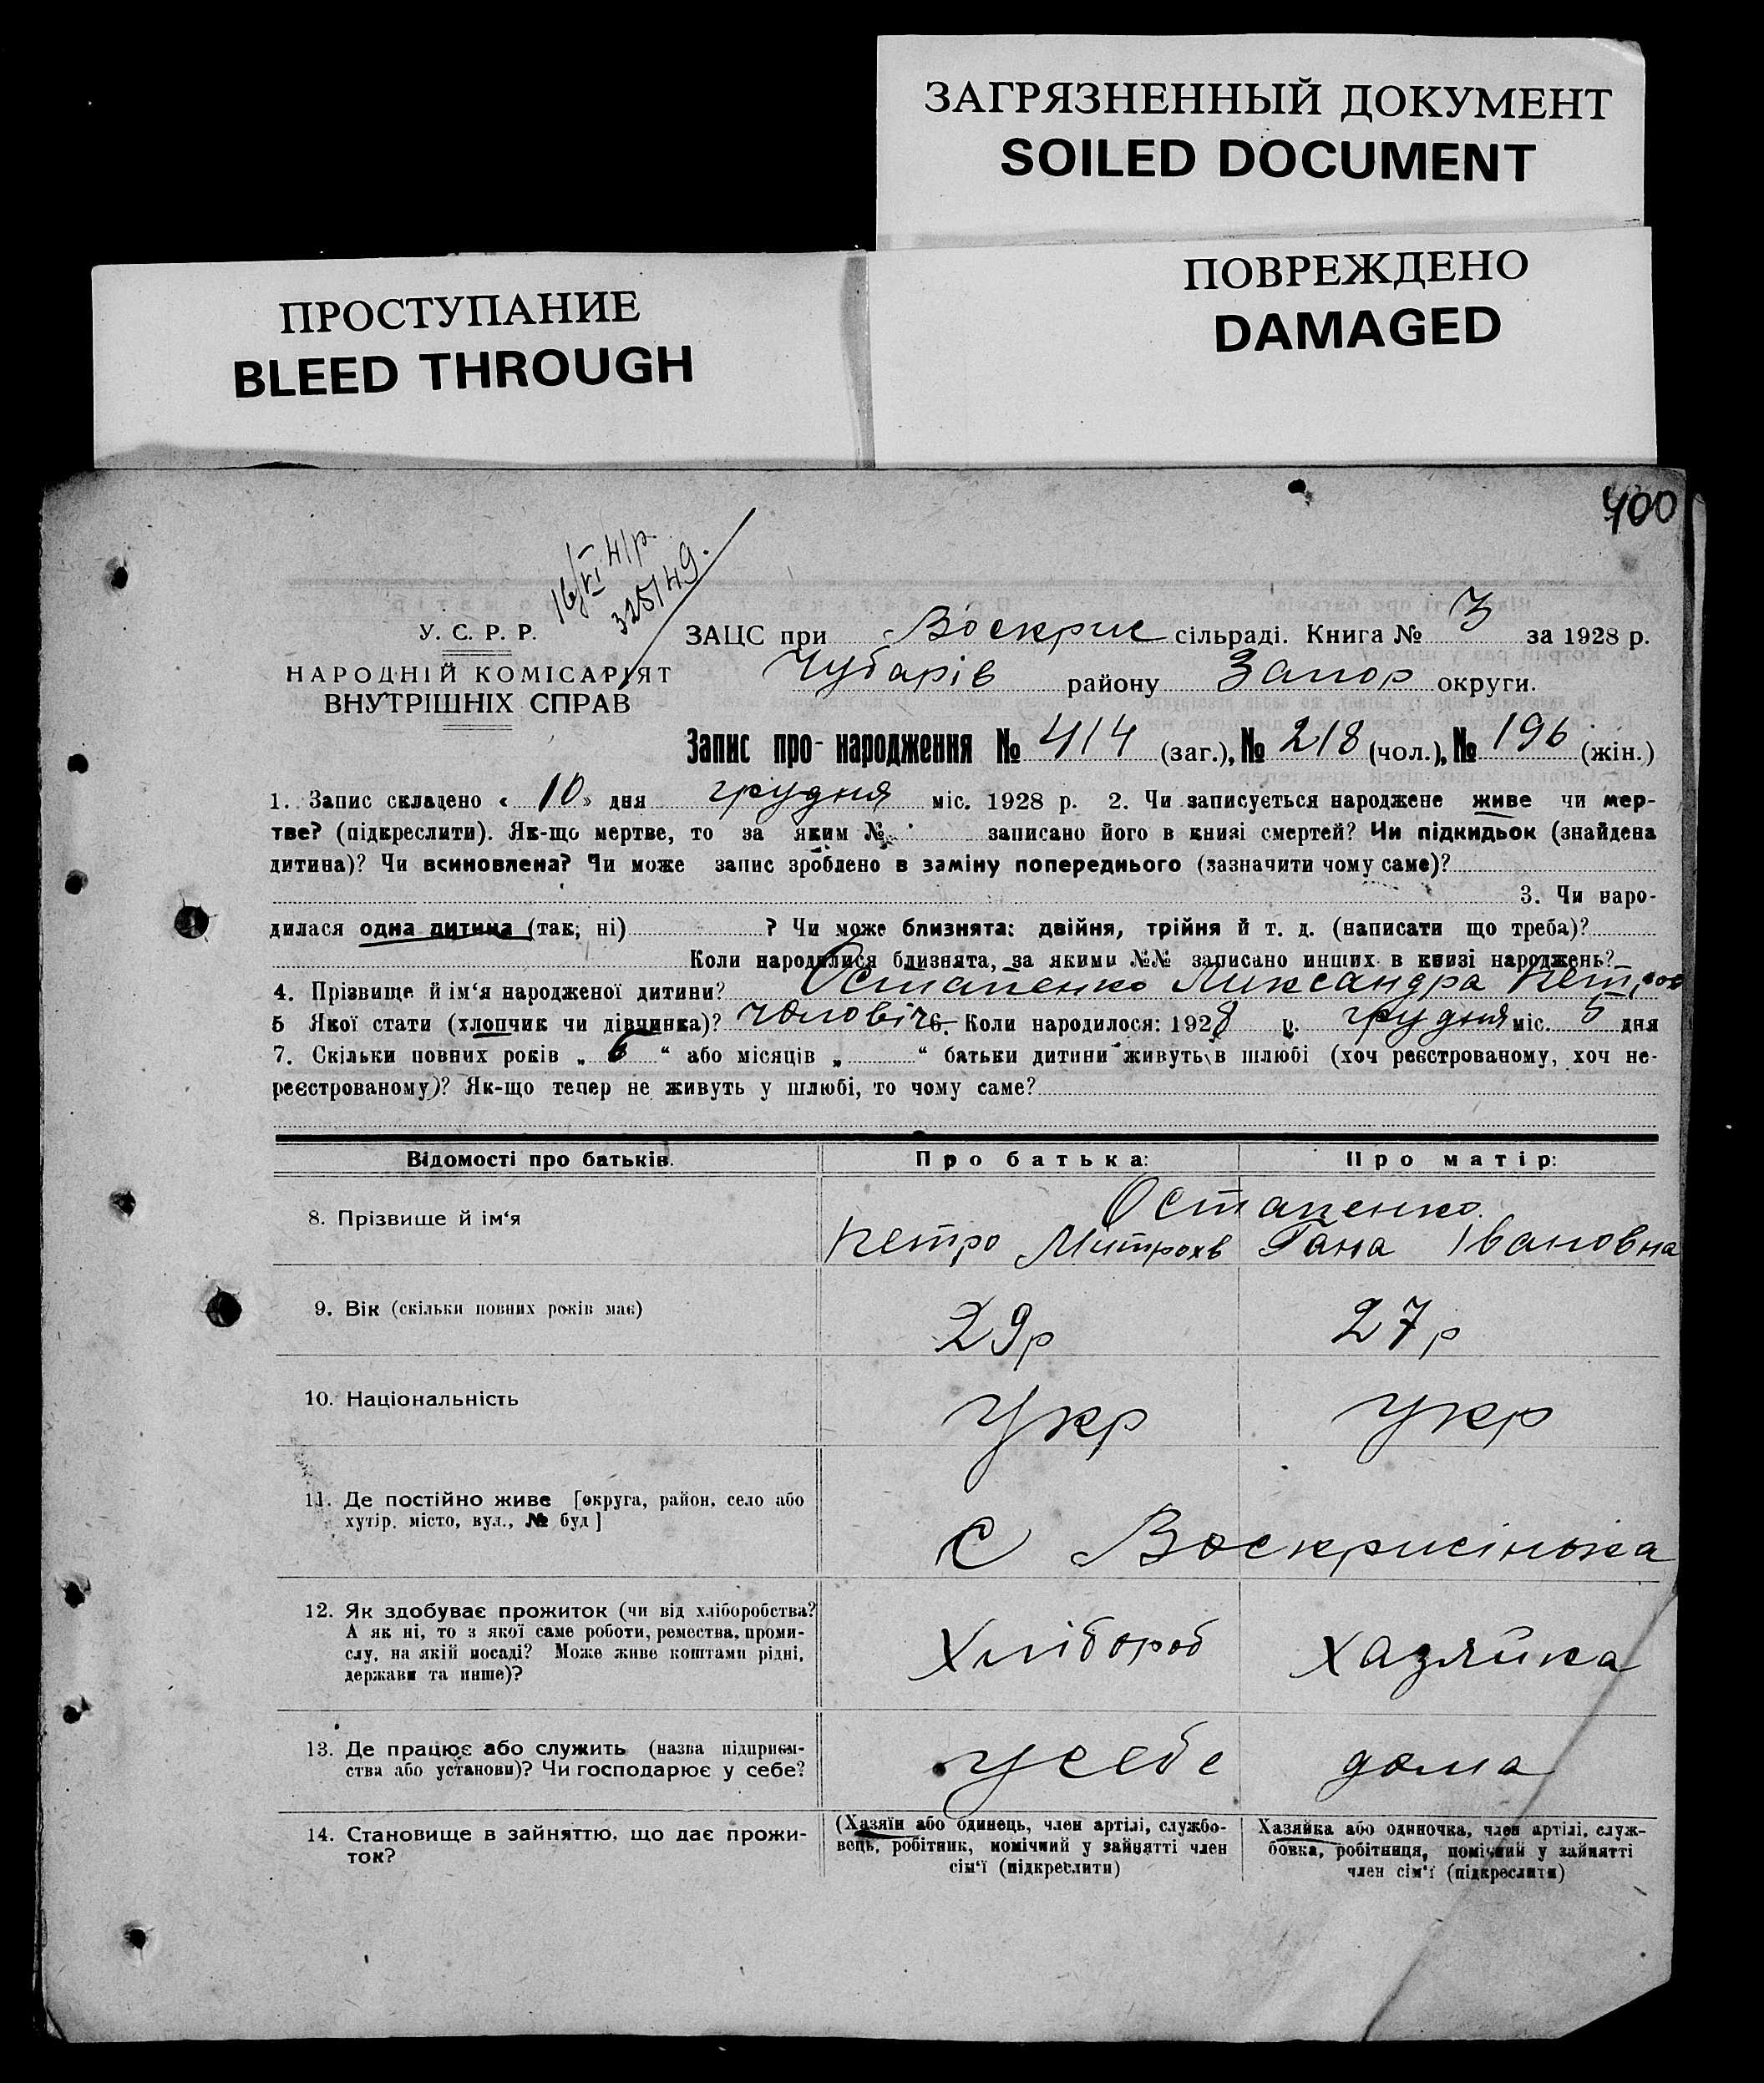 ЗАГРЯЗНЕННЫЙ ДОКУМЕНТ
SOILED DOCUMENT
ПОВРЕЖДЕНО
DAMAGED
ПРОСТУПАНИЕ
BLEED THROUGH
400
16/VI 41р.
325/49.
У. С. Р. Р.
НАРОДНІЙ КОМІСАРІЯТ
ВНУТРІШНІХ СПРАВ
ЗАЦС при Воскрис сільраді. Книга № 3 за 1928 р.
Чубарів району Запор округи.
Запис про народження № 414 (заг.), № 218 (чол.), № 196 (жін.)
1. Запис складено « 10 » дня грудня міс. 1928 р. 2. Чи записується народжене живе чи мер-
тве? (підкреслити). Як-що мертве, то за яким № записано його в книзі смертей? Чи підкидьок (знайдена
дитина)? Чи всиновлена? Чи може запис зроблено в заміну попереднього (зазначити чому саме)?
3. Чи наро-
дилася одна дитина (так, ні) ? Чи може близнята: двійня, трійня й т. д. (написати що треба)?
Коли народилися близнята, за якими №№ записано инших в книзі народжень?
4. Прізвище й ім‘я народженої дитини? Остапенко Александра
5 Якої стати (хлопчик чи дівчинка)? Чоловіч 6. Коли народилося: 1928 р. грудня міс. 5 дня
7. Скільки повних років „ 6 “ або місяців „ “ батьки дитини живуть в шлюбі (хоч реєстрованому, хоч не-
реєстрованому)? Як-що тепер не живуть у шлюбі, то чому саме?
Відомості про батьків. Про батька: Про матір:
Остапенко.
8. Прізвище й ім‘я Петро Митрохв Гана Івановна
9. Вік (скільки повних років має) 29р 27р
10. Національність Укр Укр
11. Де постійно живе [округа, район, село або
хутір, місто, вул., № буд]
С Воскрисінька
12. Як здобуває прожиток (чи від хліборобства?
А як ні, то з якої саме роботи, ремества, проми-
слу, на якій посаді? Може живе коштами рідні,
держави та инше)?
Хлібороб Хазяйка
13. Де працює або служить (назва підприєм-
ства або установи)? Чи господарює у себе?
усебе дома
14. Становище в зайняттю, що дає прожи-
ток?
(Хазяїн або одинець, член артілі, службо-
вець, робітник, помічний у зайнятті член
сім‘ї (підкреслити)
Хазяйка або одиночка, член артілі, служ-
бовка, робітниця, помічний у зайнятті
член сім‘ї (підкреслити)